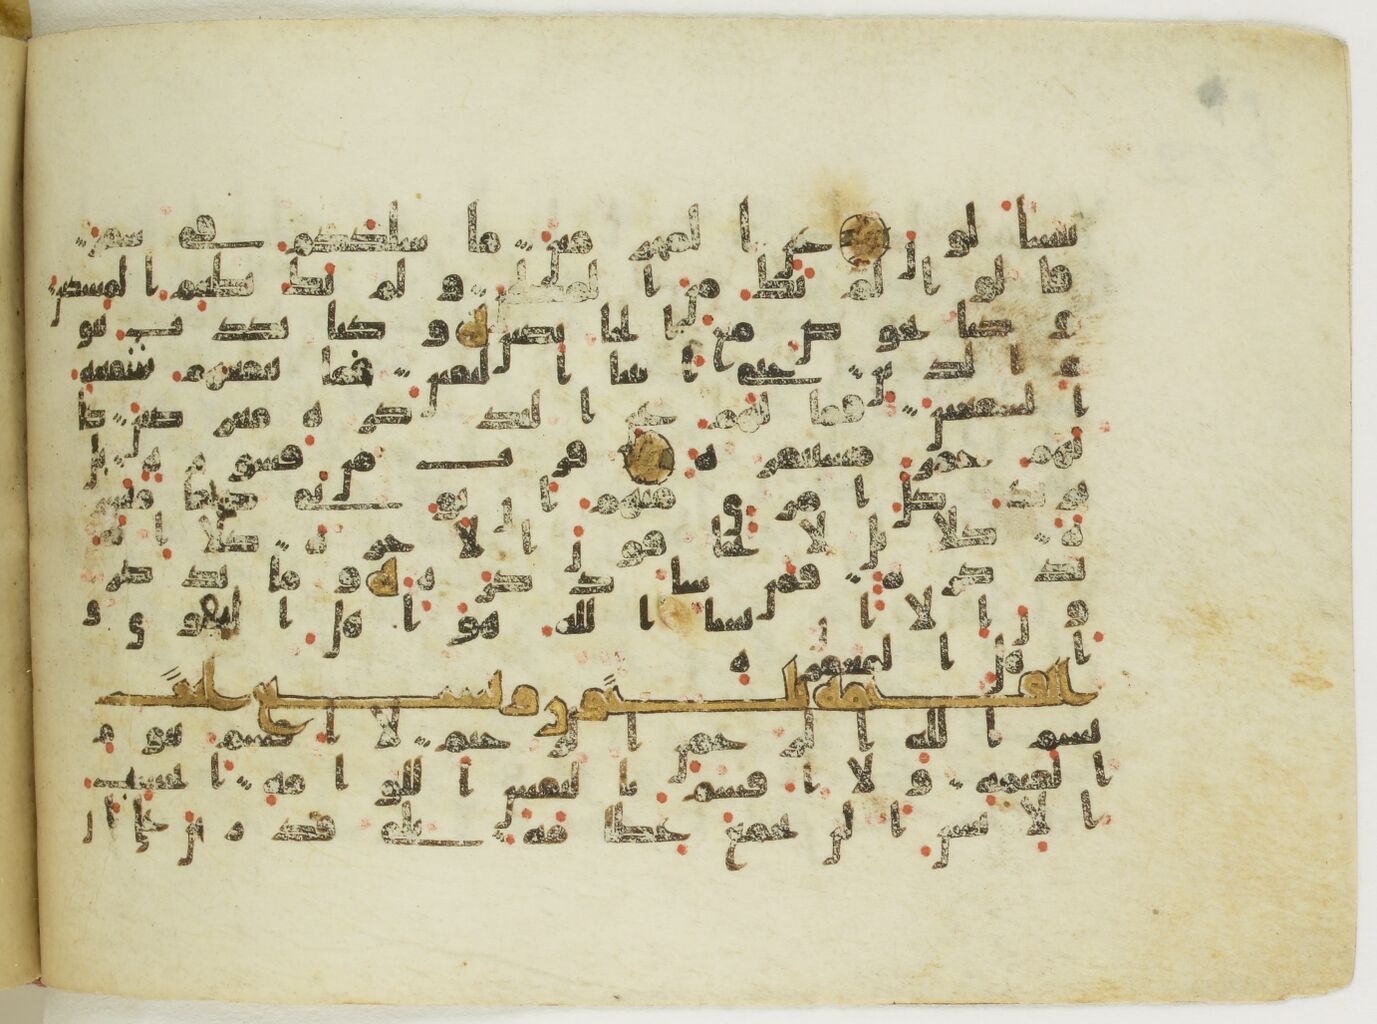 يتسالون عن المجرمين ما سلككم في سقر
قالوا لم نك من المصلين ولم نك نطعم المسكين
وكنا نخوض مع الخائضين وكنا نكذب بيو
م الدين حتى اتينا اليقين فما تنفعهم شفعة
الشفعين فما لهم عن التذكرة معرضين كا
نهم حمر مستنفرة فرت من قسورة بل
يريد كل امرئ منهم ان يؤتى صحفا منشر
ة كلا بل لا يخافون الاخرة كلا انه
تذكرة فمن شا ذكره وما يذكرو
ن الا ان يشا الله هو اهل التقوى و
اهل المغفرة
القيمة ثلثون وتسع
بسم الله الرحمن الرحيم لا اقسم بيوم
القيمة ولا اقسم بالنفس اللوامة ايحسب
الانسن الن نجمع عظامه بلى قدرين على ان